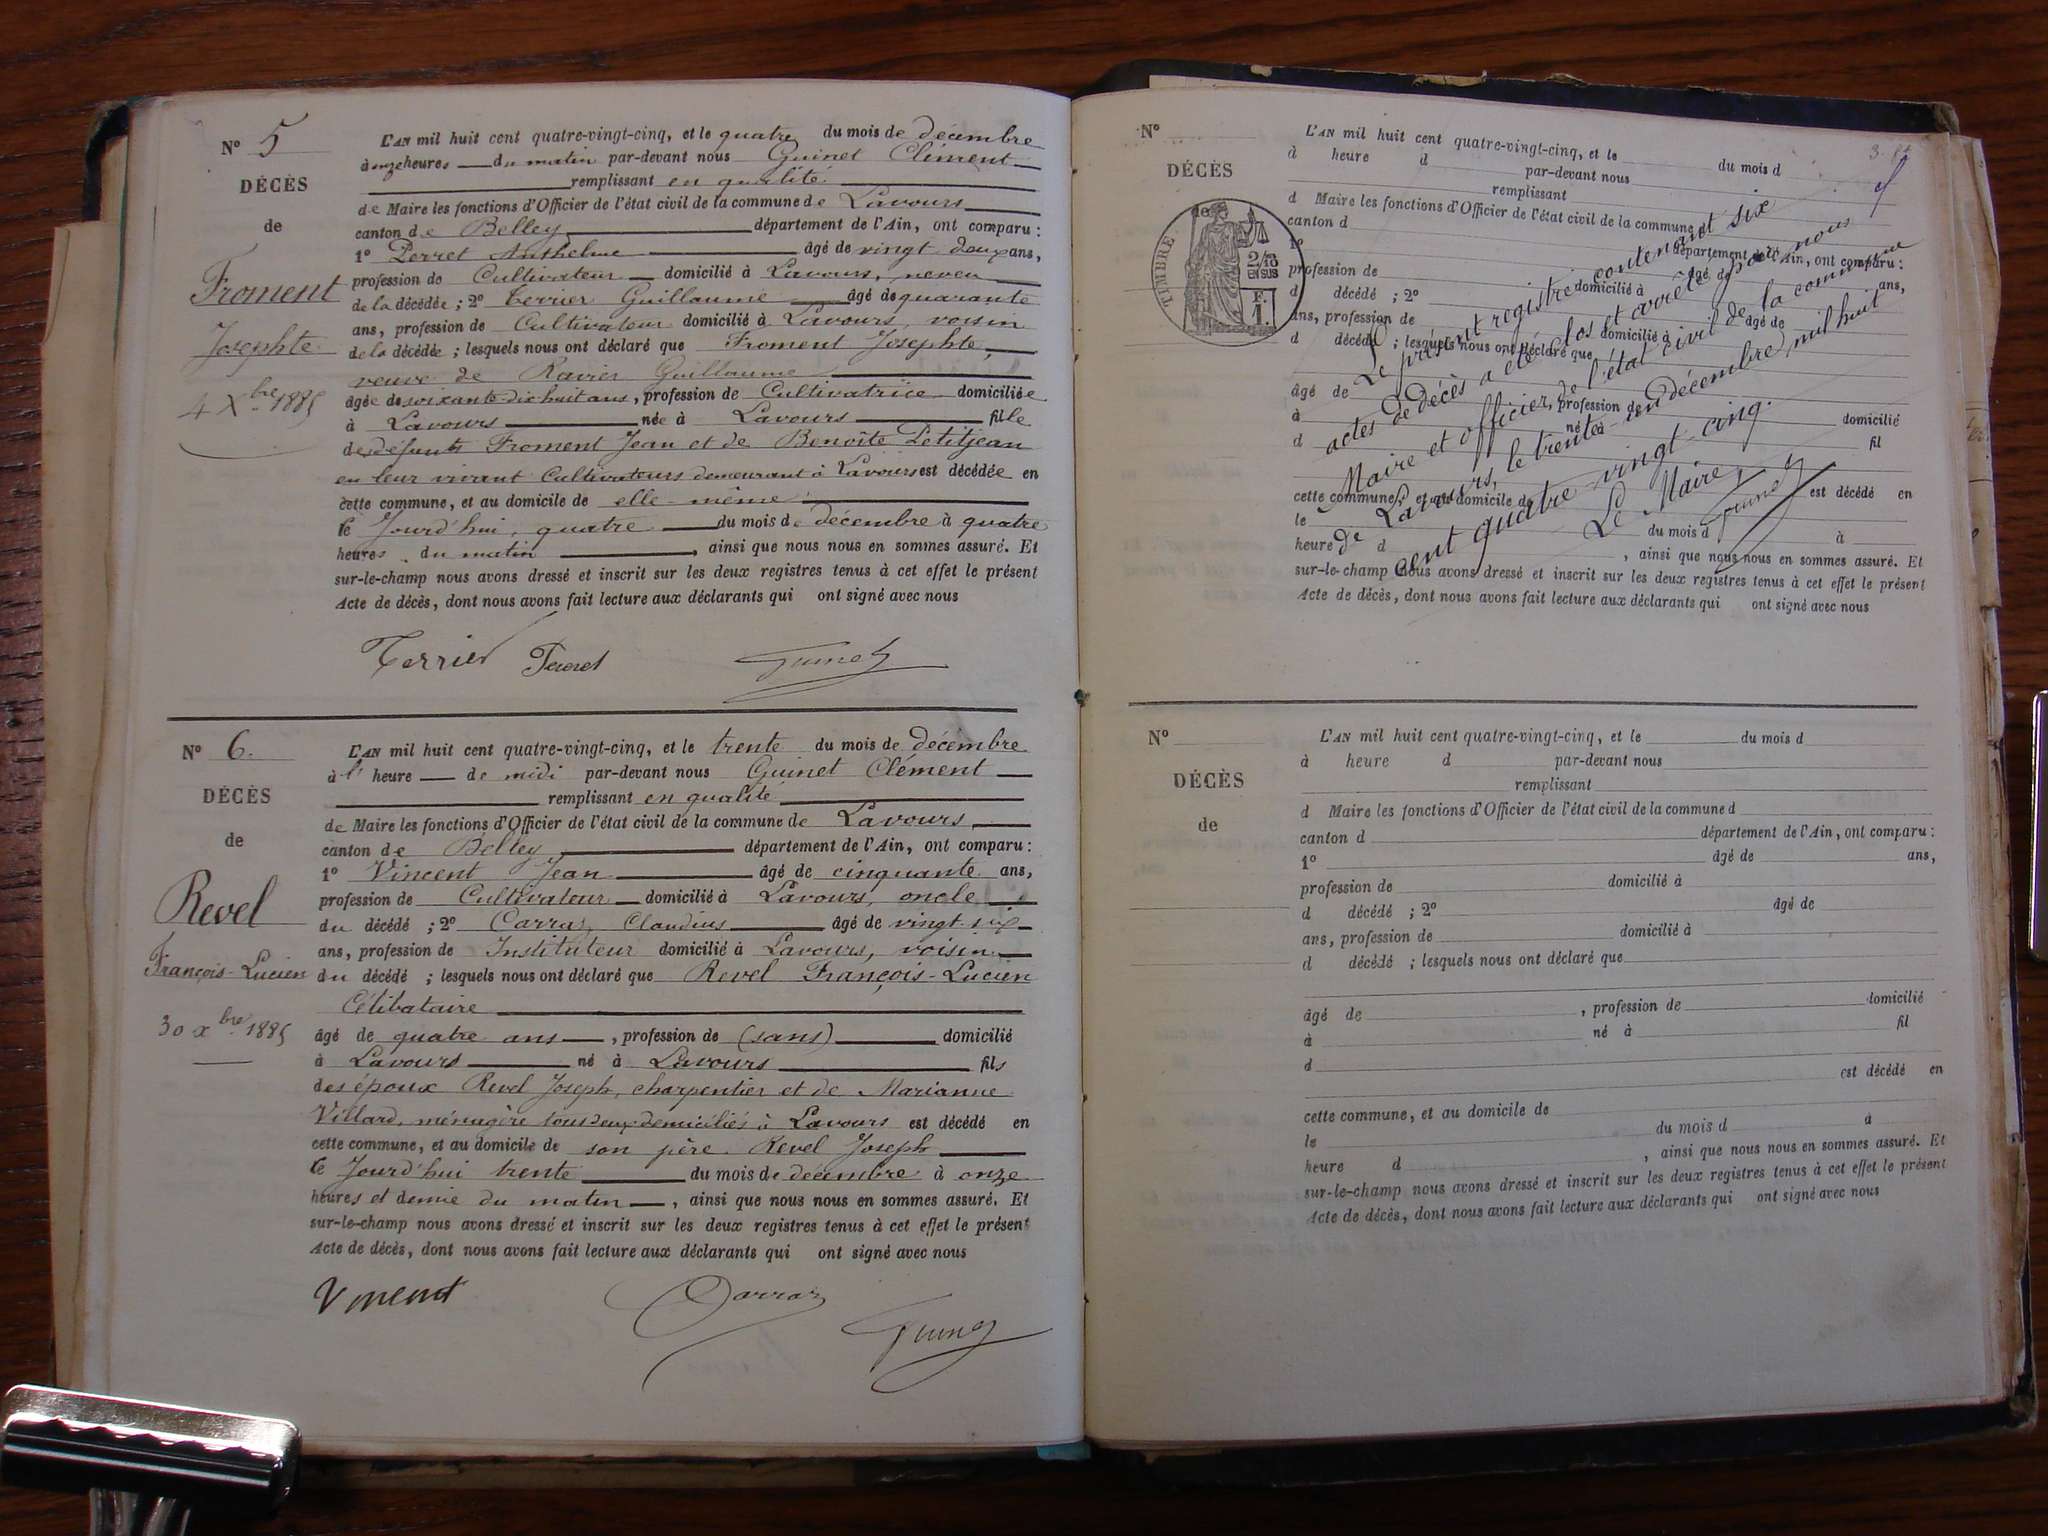 N° 5
DÉCÈS
de
Froment
Josephte
4 Xbre 1885
L'AN mil huit cent quatre-vingt-cinq, et le quatre du mois de décembre
à onze heures du matin par-devant nous Guinet Clément
remplissant en qualité
de Maire les fonctions d'Officier de l'état civil de la commune de Lavours
canton de Belley département de l'Ain, ont comparu :
1° Perret Anthelme âgé de vingt deux ans,
profession de Cultivateur domicilié à Lavours, neveu
de la décédée ; 2° Terrier Guillaume âgé de quarante
ans, profession de Cultivateur domicilié à Lavours, voisin
de la décédée ; lesquels nous ont déclaré que Froment Josephte,
veuve de Ravier Guillaume
âgée de soixante dix huit ans, profession de Cultivatrice domiciliée
à Lavours née à Lavours fille
des défunts Froment Jean et de Benoîte Petitjean
en leur vivant Cultivateurs demeurant à Lavours est décédée en
cette commune, et au domicile de elle-même
le Jourd'hui, quatre du mois de décembre à quatre
heures du matin , ainsi que nous nous en sommes assuré. Et
sur-le-champ nous avons dressé et inscrit sur les deux registres tenus à cet effet le présent
Acte de décès, dont nous avons fait lecture aux déclarants qui ont signé avec nous
Terrier Perret Guinet
N° 6.
DÉCÈS
de
Revel
François-Lucien
30 xbre 1885
L'AN mil huit cent quatre-vingt-cinq, et le trente du mois de décembre
à l' heure de midi par-devant nous Guinet Clément
remplissant en qualité
de Maire les fonctions d'Officier de l'état civil de la commune de Lavours
canton de Belley département de l'Ain, ont comparu :
1° Vincent Jean âgé de cinquante ans,
profession de Cultivateur domicilié à Lavours, oncle
du décédé ; 2° Carraz Claudius âgé de vingt six
ans, profession de Instituteur domicilié à Lavours, voisin
du décédé ; lesquels nous ont déclaré que Revel François-Lucien
Célibataire
âgé de quatre ans , profession de (sans) domicilié
à Lavours né à Lavours fils
des époux Revel Joseph, charpentier et de Marianne
Villard, ménagère tous deux domiciliés à Lavours est décédé en
cette commune, et au domicile de son père Revel Joseph
le Jourd'hui trente du mois de décembre à onze
heures et demie du matin , ainsi que nous nous en sommes assuré. Et
sur-le-champ nous avons dressé et inscrit sur les deux registres tenus à cet effet le présent
Acte de décès, dont nous avons fait lecture aux déclarants qui ont signé avec nous
Vincent Carraz Guinet
N°
DÉCÈS
de
TIMBRE
2/10
EN SUS
F.
1.
L'AN mil huit cent quatre-vingt-cinq, et le du mois d
à heure d par-devant nous
remplissant
d Maire les fonctions d'Officier de l'état civil de la commune d
canton d département de l'Ain, ont comparu :
1° âgé de ans,
profession de domicilié à
d décédé ; 2° âgé de
ans, profession de domicilié à
d décédé ; lesquels nous ont déclaré que
âgé de , profession de domicilié
à né à fil
d
est décédé en
cette commune, et au domicile de
le du mois d à
heure d , ainsi que nous nous en sommes assuré. Et
sur-le-champ nous avons dressé et inscrit sur les deux registres tenus à cet effet le présent
Acte de décès, dont nous avons fait lecture aux déclarants qui ont signé avec nous
Le présent registre contenant six
actes de décès a été clos et arrêté par nous
Maire et officier de l'état civil de la commune
de Lavours, le trente-un décembre, mil huit
cent quatre-vingt-cinq.
Le Maire,
Guinet
N°
DÉCÈS
de
L'AN mil huit cent quatre-vingt-cinq, et le du mois d
à heure d par-devant nous
remplissant
d Maire les fonctions d'Officier de l'état civil de la commune d
canton d département de l'Ain, ont comparu :
1° âgé de ans,
profession de domicilié à
d décédé ; 2° âgé de
ans, profession de domicilié à
d décédé ; lesquels nous ont déclaré que
âgé de , profession de domicilié
à né à fil
d
est décédé en
cette commune, et au domicile de
le du mois d à
heure d , ainsi que nous nous en sommes assuré. Et
sur-le-champ nous avons dressé et inscrit sur les deux registres tenus à cet effet le présent
Acte de décès, dont nous avons fait lecture aux déclarants qui ont signé avec nous